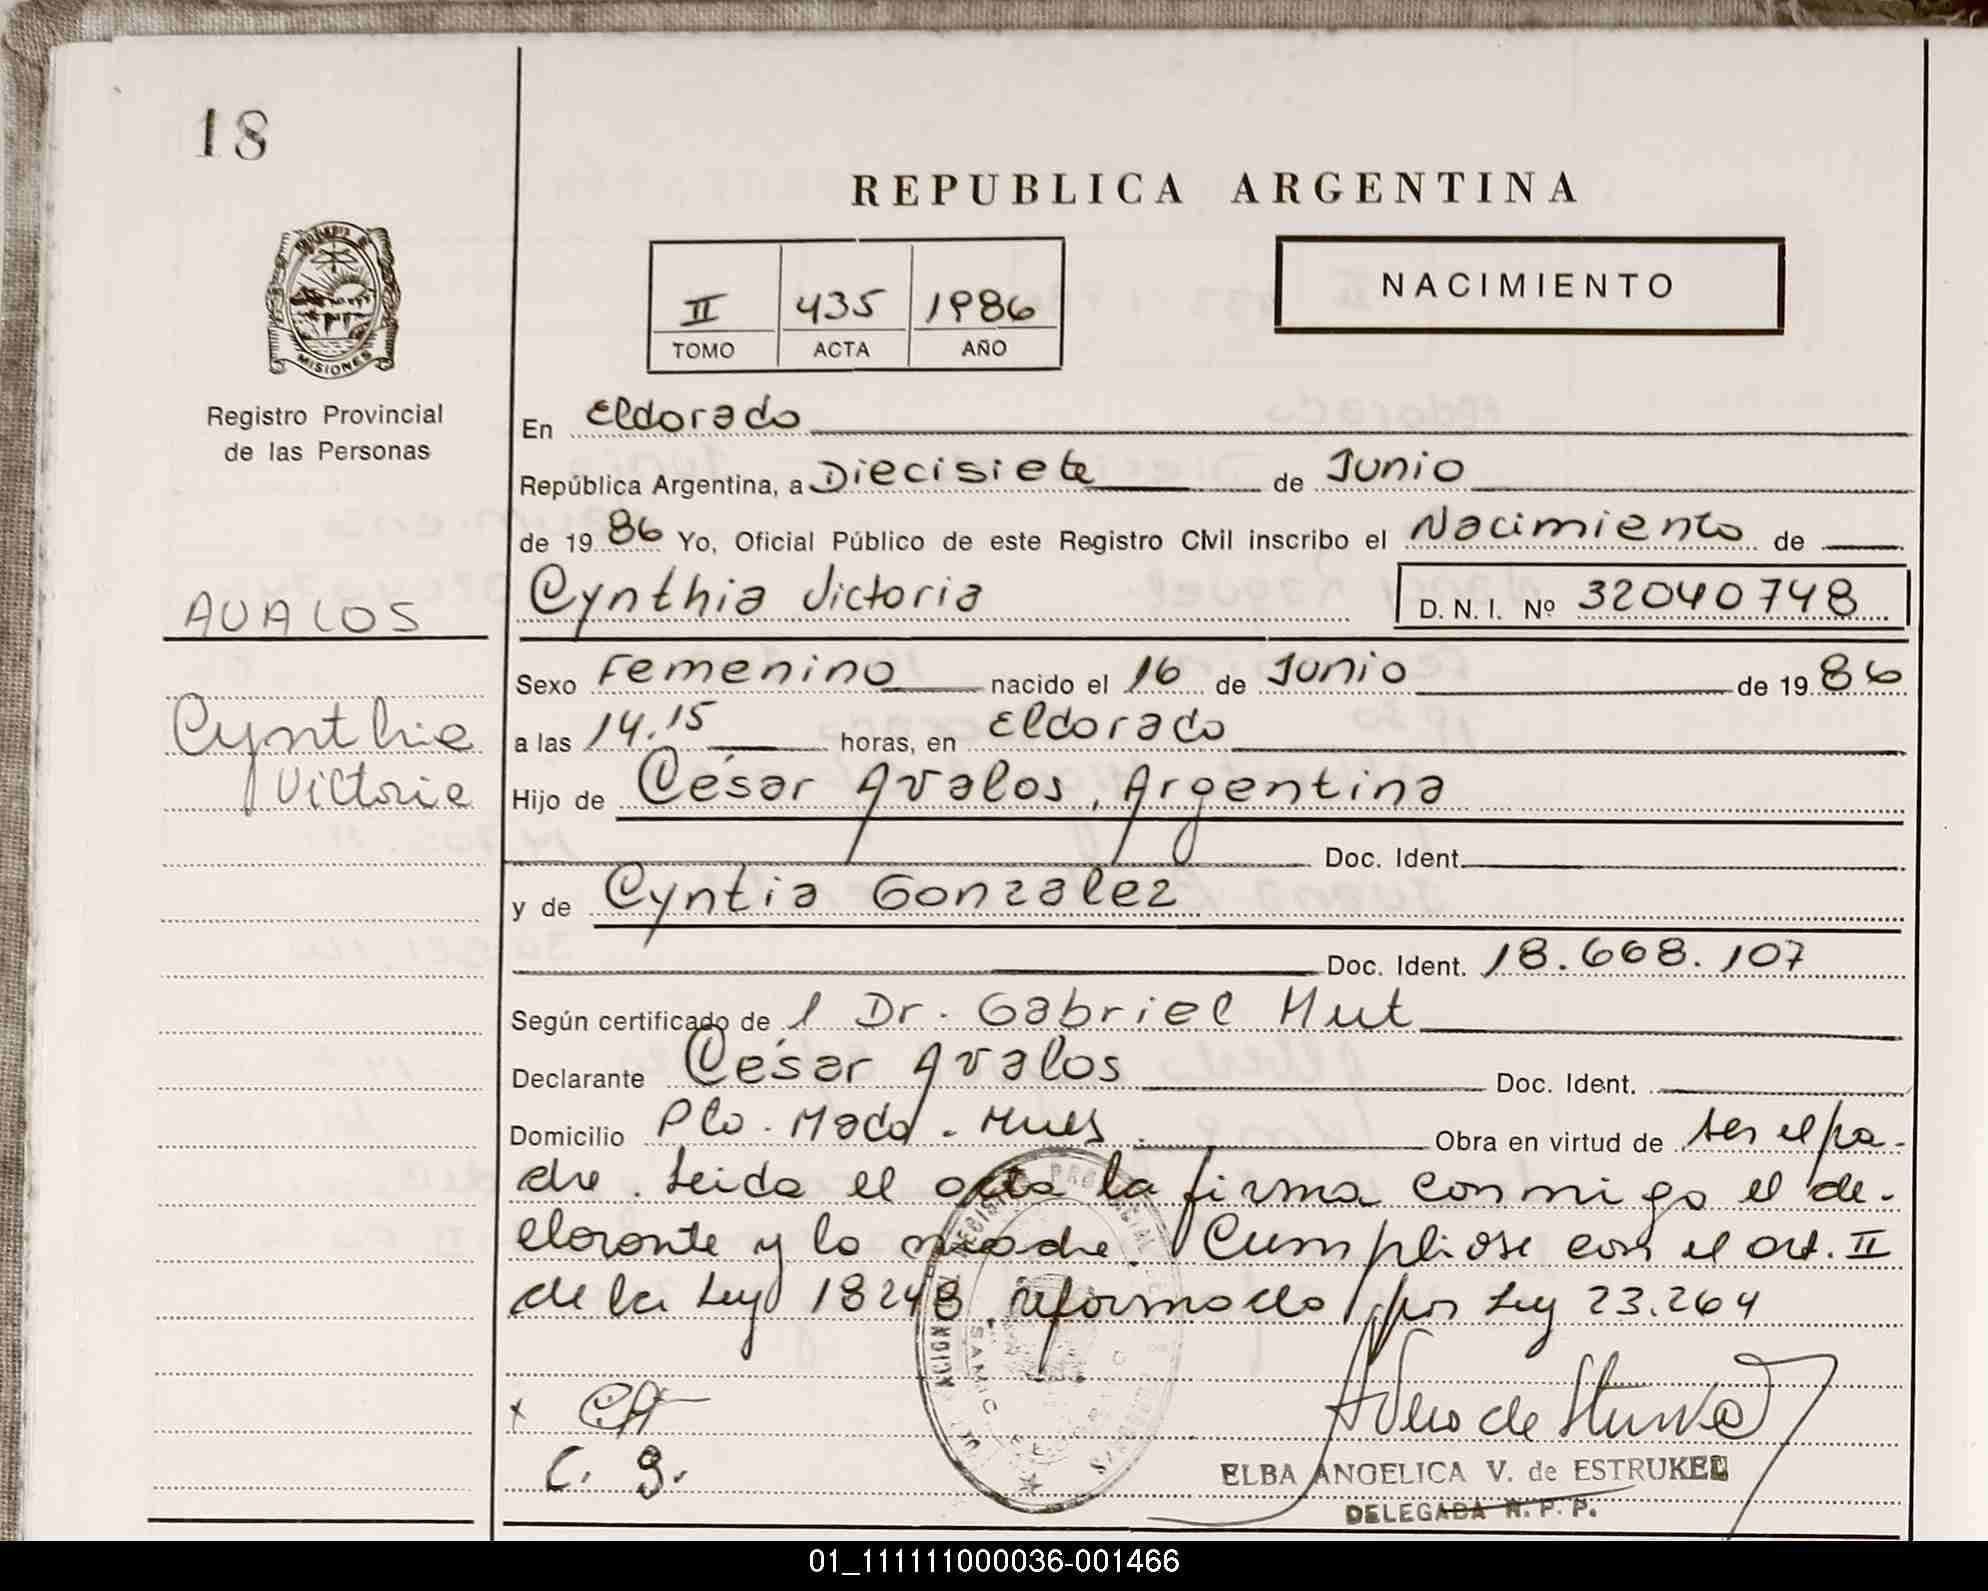 18
REPUBLICA ARGENTINA
II 435 1986
TOMO ACTA AÑO
NACIMIENTO
MISIONES
Registro Provincial
de las Personas
En Eldorado
República Argentina, a Diecisiete de Junio
de 19 86 Yo, Oficial Público de este Registro Civil inscribo el Nacimiento de
AVALOS
Cynthia Victoria D. N. I. Nº 32040748
Sexo Femenino nacido el 16 de Junio de 19 86
Cynthia
Victoria
a las 14.15 horas, en Eldorado
Hijo de César Avalos, Argentina
Doc. Ident.
y de Cyntia Gonzalez
Doc. Ident. 18.668.107
Según certificado de l Dr. Gabriel Mut
Declarante César Avalos Doc. Ident.
Domicilio Pto. Mado. Mnes. Obra en virtud de ser el pa-
dre. Leida el acta la firma conmigo el de-
clarante y la madre. Cumpliose con el art. II
de la Ley 18248 reformado por Ley 23.264
x CA
C. G.
ELBA ANGELICA V. de ESTRUKEL
DELEGADA R. P. P.
01_111111000036-001466